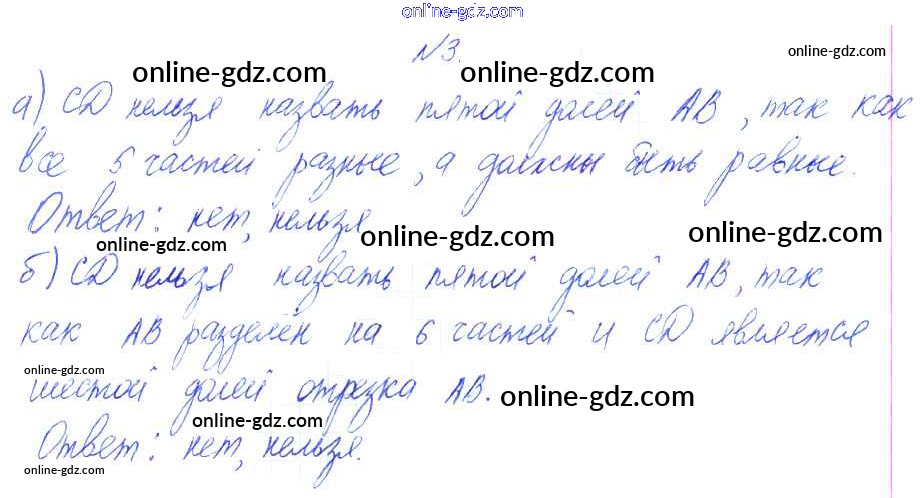 online-gdz.com
№3.
online-gdz.com
online-gdz.com
а) CD нельзя назвать пятой долей AB, так как
online-gdz.com
online-gdz.com
все 5 частей разные, а должны быть равные.
online-gdz.com
Ответ: нет, нельзя
online-gdz.com
online-gdz.com
online-gdz.com
б) CD нельзя назвать пятой долей AB, так
как AB разделён на 6 частей и CD является
online-gdz.com
шестой долей отрезка AB.
online-gdz.com
online-gdz.com
Ответ: нет, нельзя.
online-gdz.com